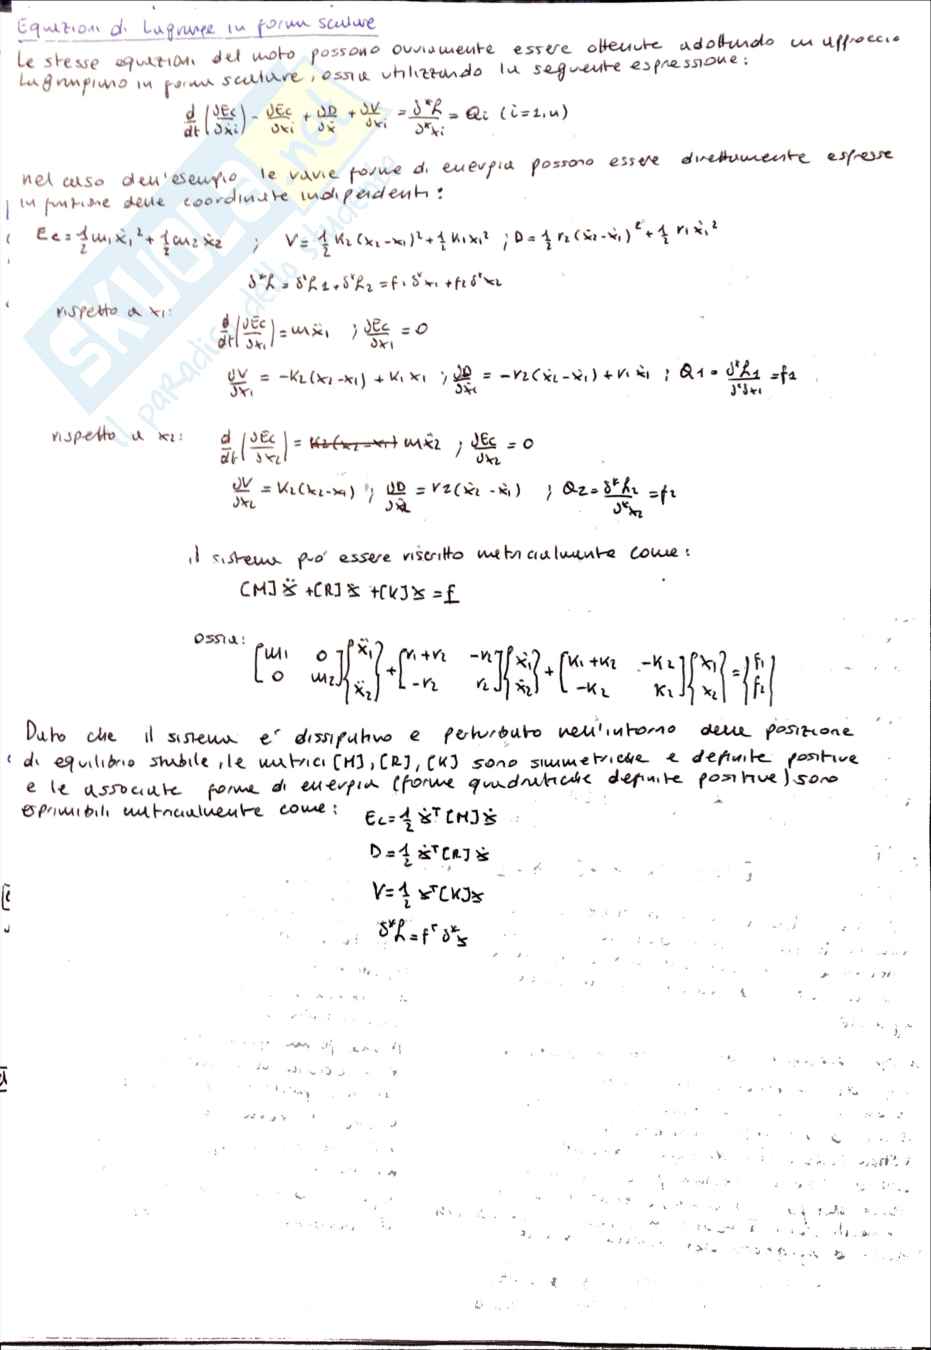 Equazioni di Lagrange in forma scalare
Le stesse equazioni del moto possono ovviamente essere ottenute adottando un approccio
Lagrangiano in forma scalare, ossia utilizzando la seguente espressione:
d/dt (∂Ec/∂ẋi) - ∂Ec/∂xi + ∂D/∂ẋ + ∂V/∂xi = δ*L/δ*xi = Qi (i=1,n)
nel caso dell'esempio le varie forme di energia possono essere direttamente espresse
in funzione delle coordinate indipendenti:
Ec = 1/2 m1 ẋ1² + 1/2 m2 ẋ2 ; V = 1/2 K2 (x2-x1)² + 1/2 K1 x1² ; D = 1/2 r2 (ẋ2-ẋ1)² + 1/2 r1 ẋ1²
δ*L = δ*L1 + δ*L2 = f1 δ*x1 + f2 δ*x2
rispetto a x1: d/dt (∂Ec/∂ẋ1) = mẍ1 ; ∂Ec/∂x1 = 0
∂V/∂x1 = -K2(x2-x1) + K1 x1 ; ∂D/∂ẋ1 = -r2(ẋ2-ẋ1) + r1 ẋ1 ; Q1 = δ*L1/δ*x1 = f1
rispetto a x2: d/dt (∂Ec/∂ẋ2) = K2(x2-x1) mẍ2 ; ∂Ec/∂x2 = 0
∂V/∂x2 = K2(x2-x1) ; ∂D/∂ẋ2 = r2(ẋ2-ẋ1) ; Q2 = δ*L2/δ*x2 = f2
il sistema può essere riscritto matricialmente come:
[M]ẍ + [R]ẋ + [K]x = f
ossia: [m1 0 0 m2]{ẍ1 ẍ2} + [r1+r2 -r2 -r2 r2]{ẋ1 ẋ2} + [K1+K2 -K2 -K2 K2]{x1 x2} = {f1 f2}
Dato che il sistema e' dissipativo e perturbato nell'intorno della posizione
di equilibrio stabile, le matrici [M], [R], [K] sono simmetriche e definite positive
e le associate forme di energia (forme quadratiche definite positive) sono
esprimibili matricialmente come: Ec = 1/2 ẋᵀ[M]ẋ
D = 1/2 ẋᵀ[R]ẋ
V = 1/2 xᵀ[K]x
δ*L = fᵀ δ*x
SKUOLA.net
il paradiso dello studente